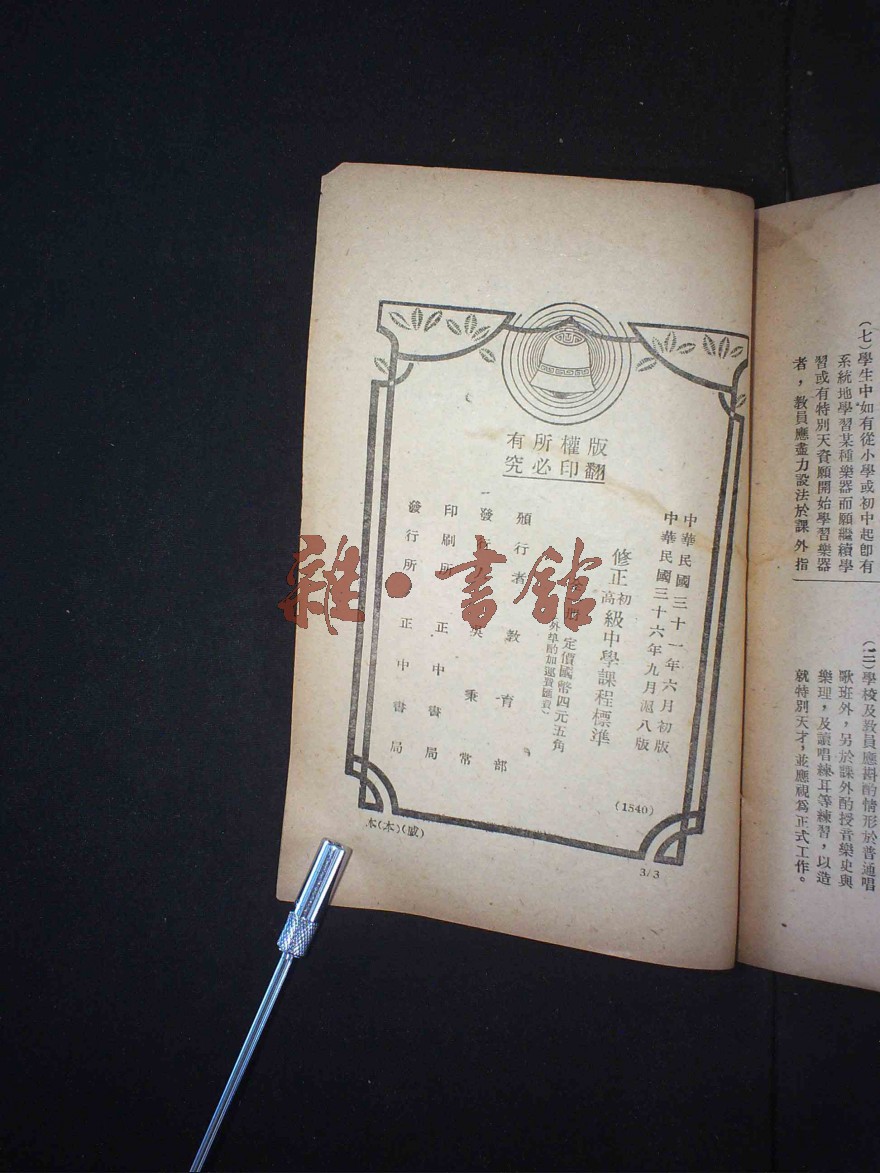 (七)學生中如有從小學或初中起卽有
系統地學習某種樂器而願繼續學
習或有特別天資願開始學習樂器
者，教員應盡力設法於課外指
(二)學校及教員應斟酌情形於普通唱
歌班外，另於課外酌授音樂史與
樂理，及讀唱練耳等練習，以造
就特別天才，並應視爲正式工作。
版權所有
翻印必究
中華民國三十一年六月初版
中華民國三十六年九月滬八版
修正初高級中學課程標準
全 册 定價國幣四元五角
(外埠酌加運費匯費)
頒行者 教育部
發行人 吳秉常
印刷所 正中書局
發行所 正中書局
(1540)
本(本)(威)
3/3
雜·書館